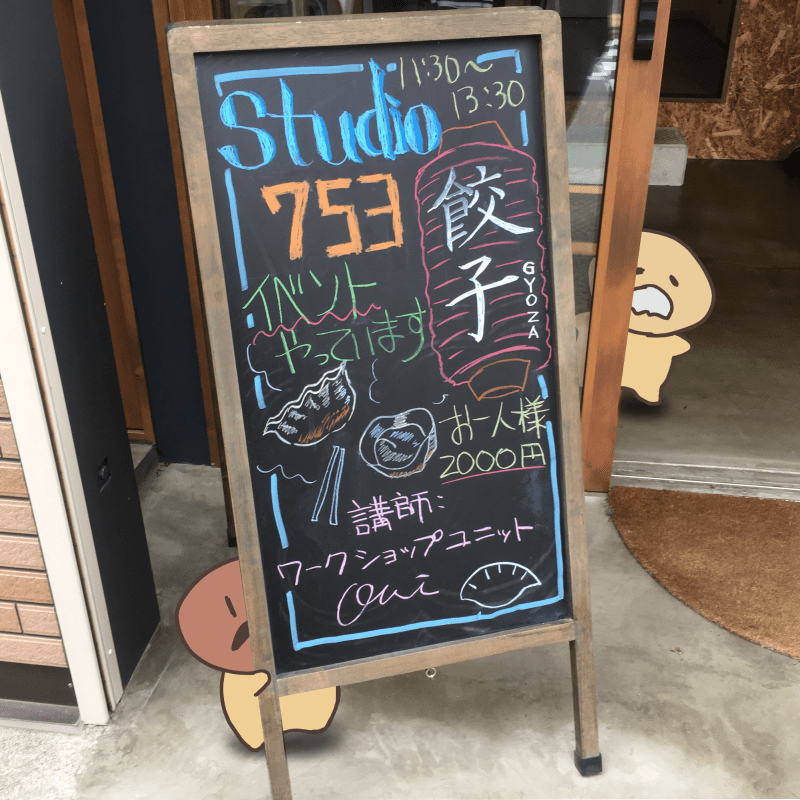 Studio
11:30～
13:30
753
餃子
GYOZA
イベント
やっています
お一人様
2000円
講師:
ワークショップユニット
Oui